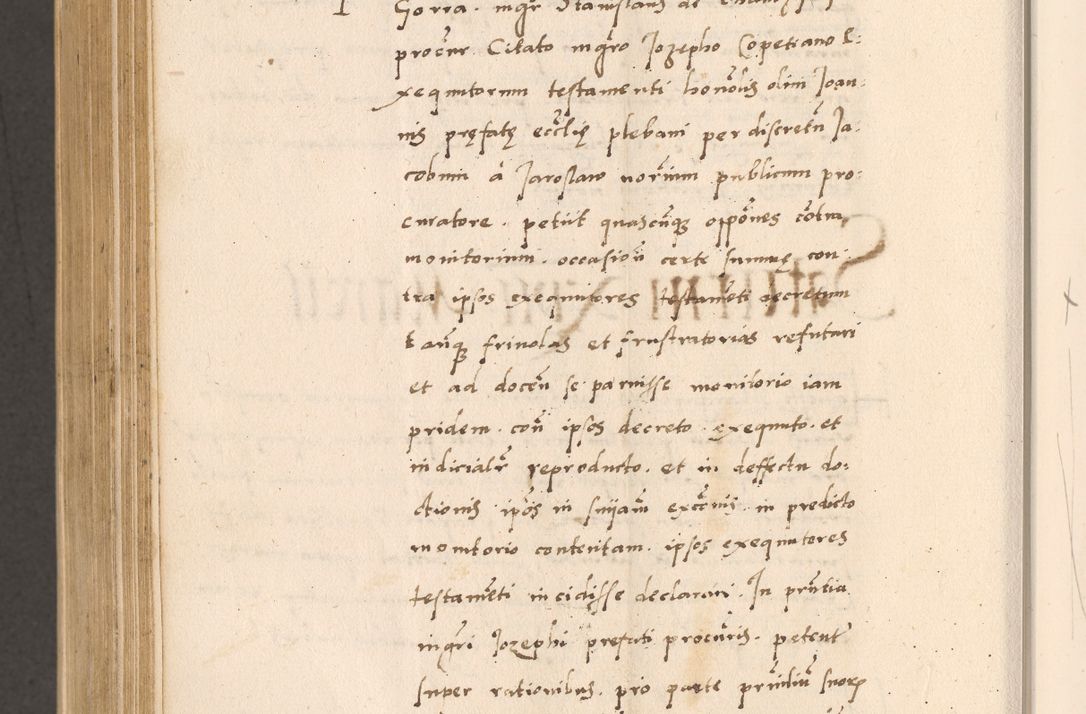 Gorra. mgr Stanislaus de
procur Citato mgro Jozepho Copetiano E:
xequutorum testamenti honolis olim Joan:
nis pręfatę ecclię plebani per discretu Ja:
cobum a Jaroslaw norium publicum pro:
curatore. petiit quascuqz oppones cotra
monitorium. occasion certe summę con:
tra ipsos exequutores testameti decretum
tanqz friuolas et frustratorias refutari
et ad docen se paruisse monitorio iam
pridem. con ipsos decreto. exequuto. et
indicialr reproducto. et in deffectu do:
ctionis ipos in snijam excois. in predicto
monitorio contentam. ipsos exequutores
testameti incidisse declarari. In pritia
mgri Jozephi prefati procuris. petent
super rationibus. pro parte suorz